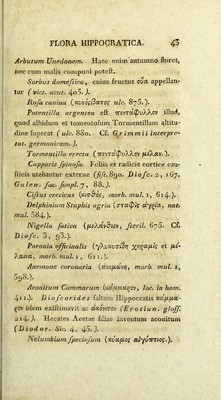 FLORA HIPPOCRATICA. 43
Arbutum Unedonem. Haec enim autumno floret,
nec cum malis componi potest.
Sorbus domestica, cuius fructus οὖα appellan-
tur (vict. acut. 403.).
Rosa canina (κυνόσβατος ulc. 875.).
Potentilla argentea est πεντάφυλλον illud,
quod albidum et tomentosum Tormentillam altitu-
dine superat (ulc. 880. Cf. Grimmii interpre-
tat. germanicam.).
Tormentilla erecta (πεντάφυλλον μέλαν.).
Capparis spinosa. Foliis et radicis cortice can-
sticis utebantur externe (fist. 890. Diosc. 2, 167.
Galen. fac. simpl. 7, 88.).
Cistus creticus (κισθὸς, morb. mul. 1, 614.).
Delphinium Staphis agria (σταφὶς ἀγρία, nat.
mul. 584.).
Nigella sativa (μελάνθιον, steril. 675. Cf.
Diosc. 3, 93.).
Paeonia officinalis (γλυκυσίδη χοεραμὶς et μέ-
λαινα, morb. mul. 1, 611.).
Anemone coronaria (ἀνεμώνη, morb. mul. 1,
598.).
Aconitum Cammarum (κάμμαρον, loc. in hom.
411.). Dioscorides saltem Hippocratis κάμμα-
ρον idem existimavit ac ἀκόνιτον (Erotian. gloss.
214.). Hecates Aeetae filiae inventum aconitum
(Diodor. Sic. 4, 45.).
Nelumbium speciosum (κύαμος αἰγύπτιος.).